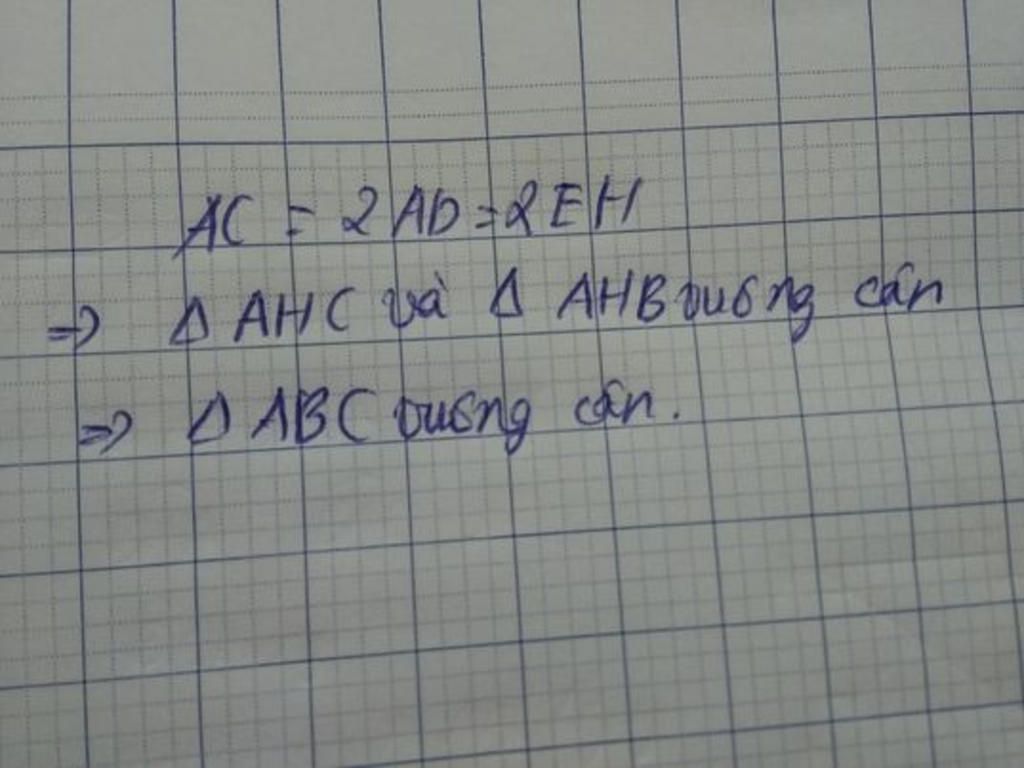 AC = 2AD = 2EH
=> Δ AHC và Δ AHB vuông cân
=> Δ ABC vuông cân.